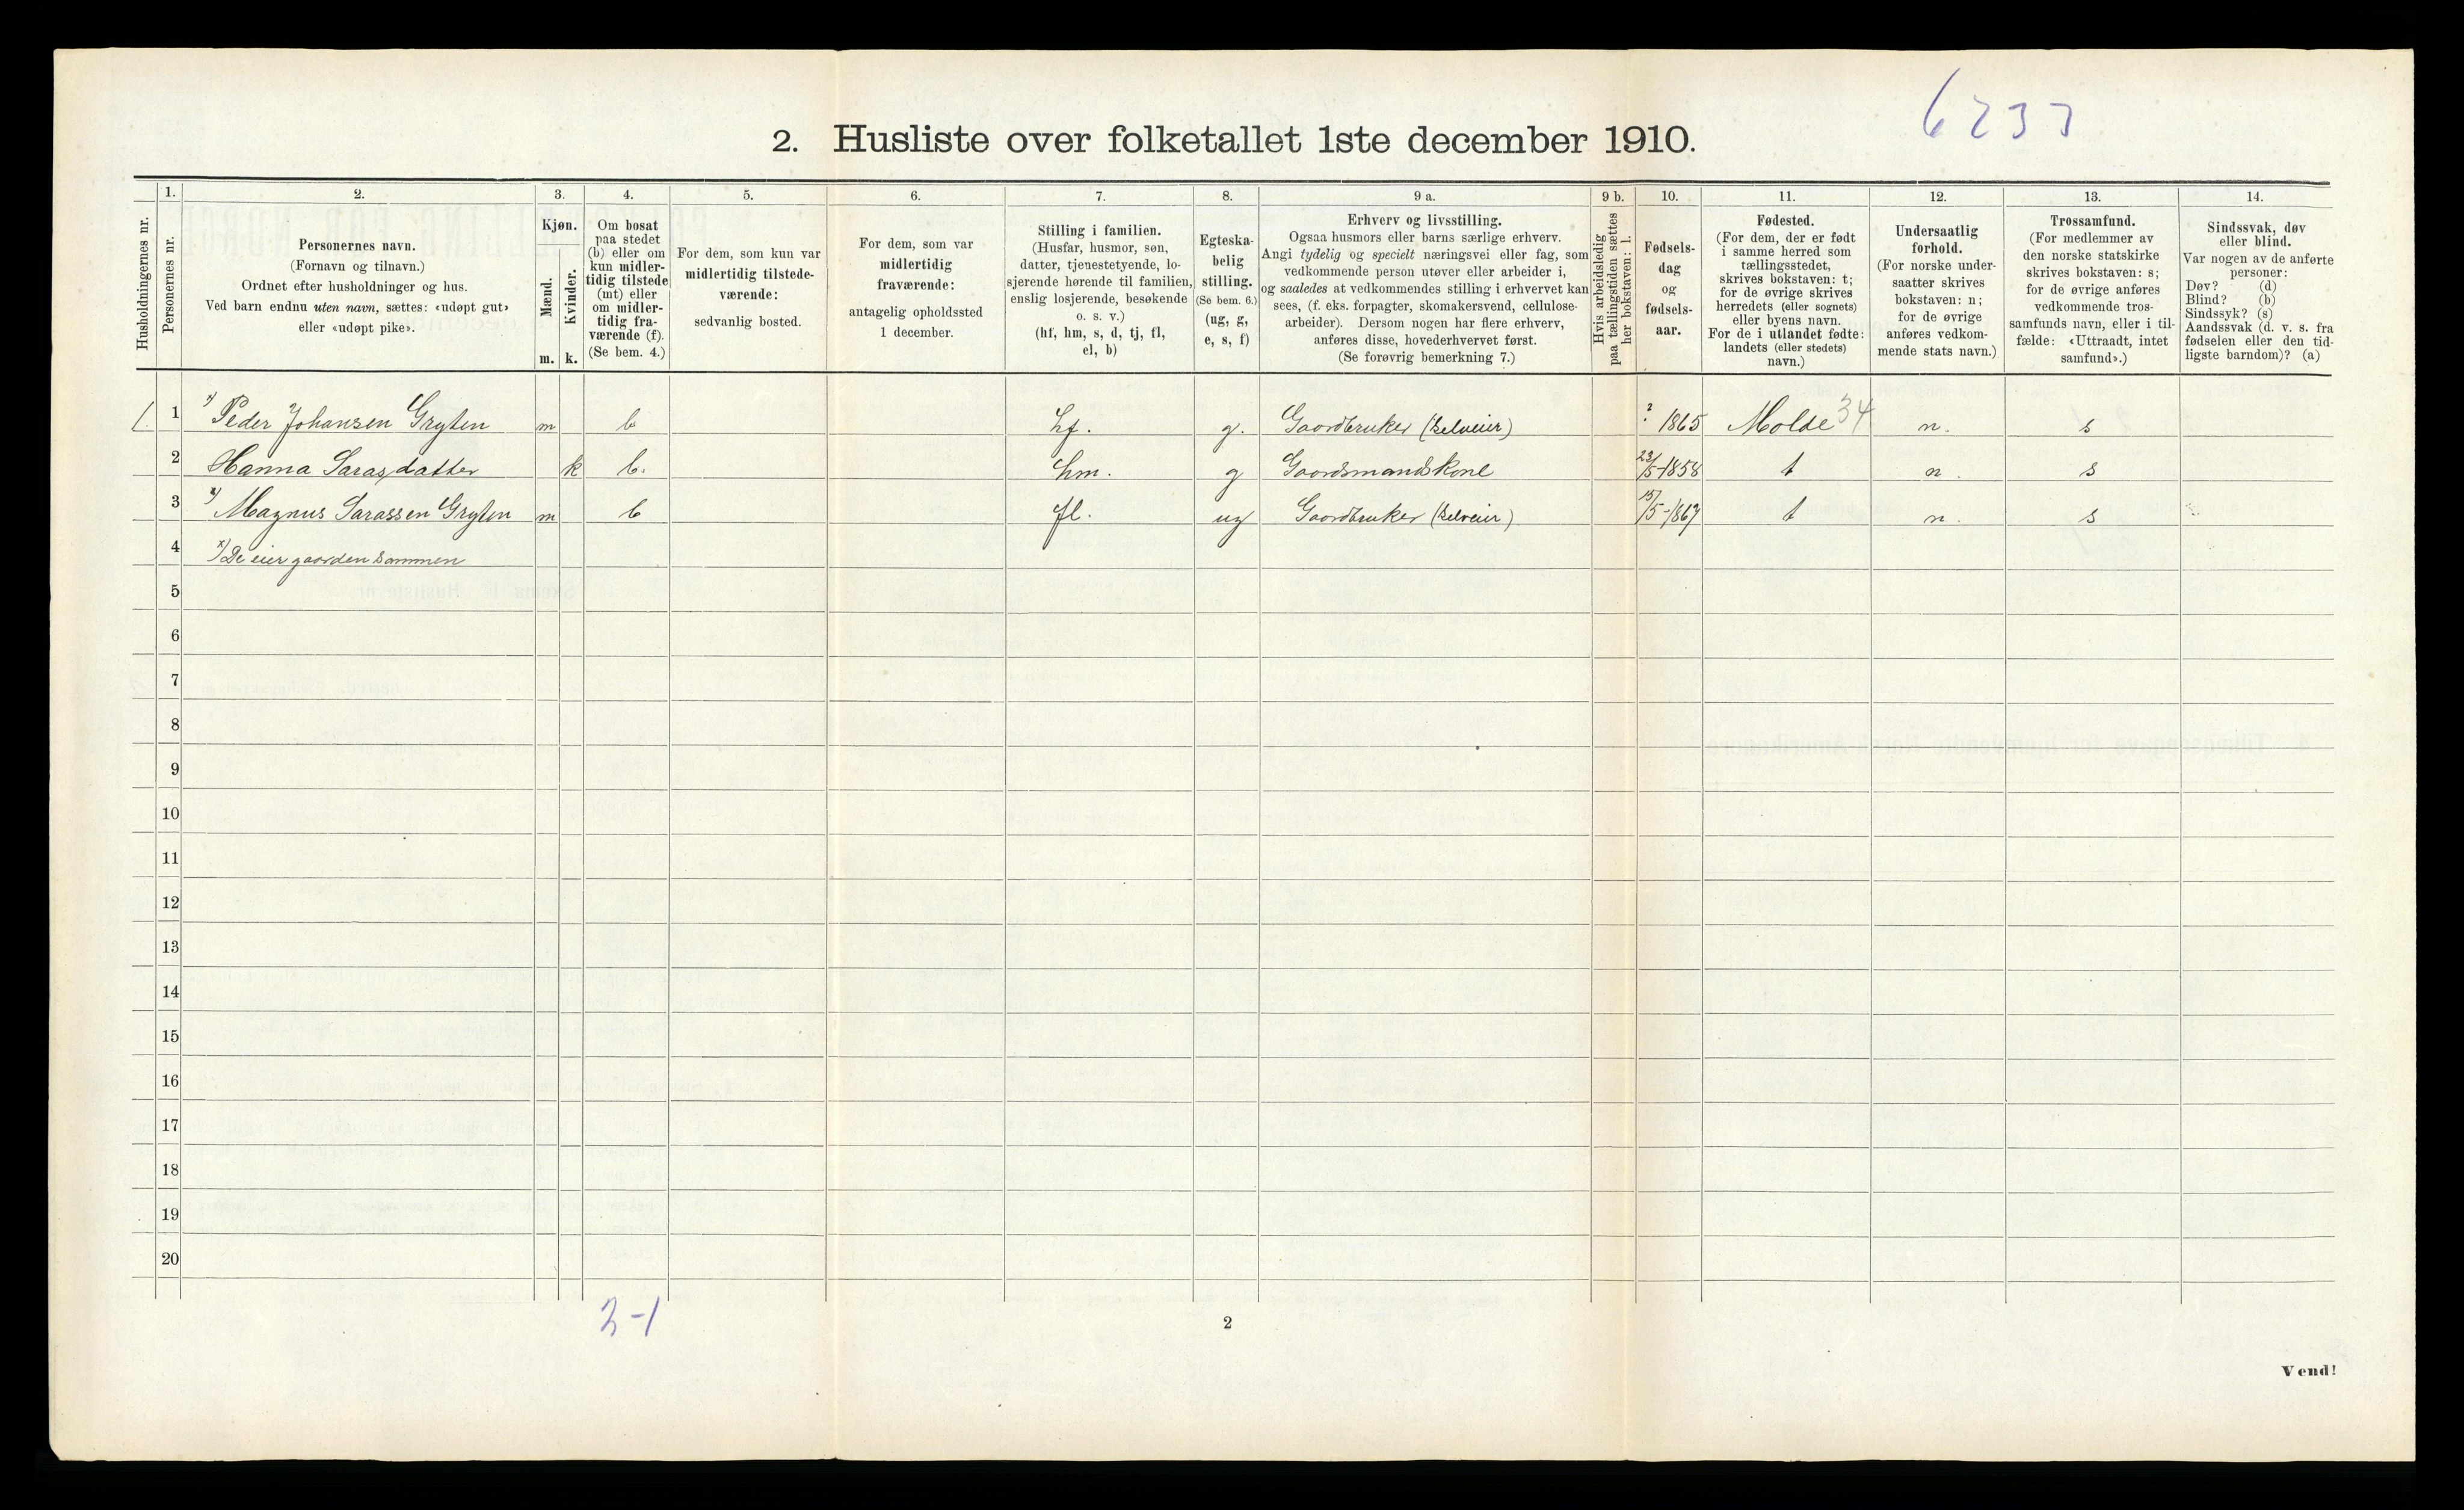 6233
2. Husliste over folketallet 1ste december 1910.
Husholdningernes nr.
1.
Personernes nr.
2.
Personernes navn.
(Fornavn og tilnavn.)
Ordnet efter husholdninger og hus.
Ved barn endnu uten navn, sættes: «udøpt gut»
eller «udøpt pike».
3.
Kjøn.
Mænd.
Kvinder.
m. k.
4.
Om bosat
paa stedet
(b) eller om
kun midler-
tidig tilstede
(mt) eller
om midler-
tidig fra-
værende (f).
(Se bem. 4.)
5.
For dem, som kun var
midlertidig tilstede-
værende:
sedvanlig bosted.
6.
For dem, som var
midlertidig
fraværende:
antagelig opholdssted
1 december.
7.
Stilling i familien.
(Husfar, husmor, søn,
datter, tjenestetyende, lo-
sjerende hørende til familien,
enslig losjerende, besøkende
o. s. v.)
(hf, hm, s, d, tj, fl,
el, b)
8.
Egteska-
belig
stilling.
(Se bem. 6.)
(ug, g,
e, s, f)
9 a.
Erhverv og livsstilling.
Ogsaa husmors eller barns særlige erhverv.
Angi tydelig og specielt næringsvei eller fag, som
vedkommende person utøver eller arbeider i,
og saaledes at vedkommendes stilling i erhvervet kan
sees, (f. eks. forpagter, skomakersvend, cellulose-
arbeider). Dersom nogen har flere erhverv,
anføres disse, hovederhvervet først.
(Se forøvrig bemerkning 7.)
9 b.
Hvis arbeidsledig
paa tællingstiden sættes
her bokstaven: l.
10.
Fødsels-
dag
og
fødsels-
aar.
11.
Fødested.
(For dem, der er født
i samme herred som
tællingsstedet,
skrives bokstaven: t;
for de øvrige skrives
herredets (eller sognets)
eller byens navn.
For de i utlandet fødte:
landets (eller stedets)
navn.)
12.
Undersaatlig
forhold.
(For norske under-
saatter skrives
bokstaven: n;
for de øvrige
anføres vedkom-
mende stats navn.)
13.
Trossamfund.
(For medlemmer av
den norske statskirke
skrives bokstaven: s;
for de øvrige anføres
vedkommende tros-
samfunds navn, eller i til-
fælde: «Uttraadt, intet
samfund».)
14.
Sindssvak, døv
eller blind.
Var nogen av de anførte
personer:
Døv? (d)
Blind? (b)
Sindssyk? (s)
Aandssvak (d. v. s. fra
fødselen eller den tid-
ligste barndom)? (a)
1. 1 x) Peder Johansen Gryten m b hf. g. Gaardbruker (Selveier) ? 1865 Molde 34 n. s
2 Hanna Sarasdatter k b. hm. g Gaardsmandskone 23/5-1858 t n. s
3 x) Magnus Sarassen Gryten m b fl. ug Gaardbruker (Selveier) 15/5-1867 t n. s
4 x) De eier gaarden sammen
5
6
7
8
9
10
11
12
13
14
15
16
17
18
19
20
2-1
2
Vend!